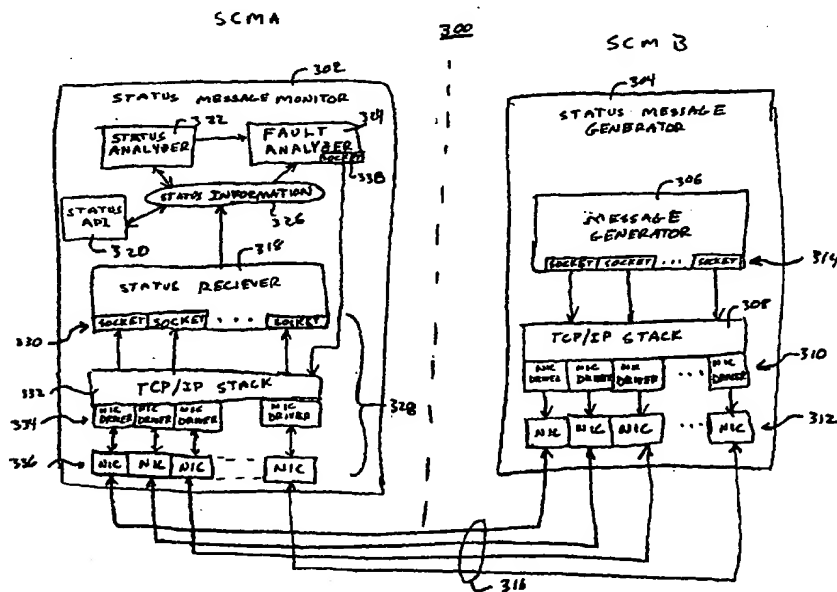 SCMA
300
SCM B
302
STATUS MESSAGE MONITOR
322
STATUS ANALYZER
324
FAULT ANALYZER
SOCKET
338
STATUS INFORMATION
326
STATUS API
320
318
STATUS RECIEVER
330
SOCKET SOCKET ... SOCKET
332
TCP/IP STACK
328
334
NIC DRIVER NIC DRIVER NIC DRIVER NIC DRIVER
336
NIC NIC NIC NIC
304
STATUS MESSAGE GENERATOR
306
MESSAGE GENERATOR
SOCKET SOCKET ... SOCKET
314
308
TCP/IP STACK
NIC DRIVER NIC DRIVER NIC DRIVER ... NIC DRIVER
310
NIC NIC NIC ... NIC
312
316